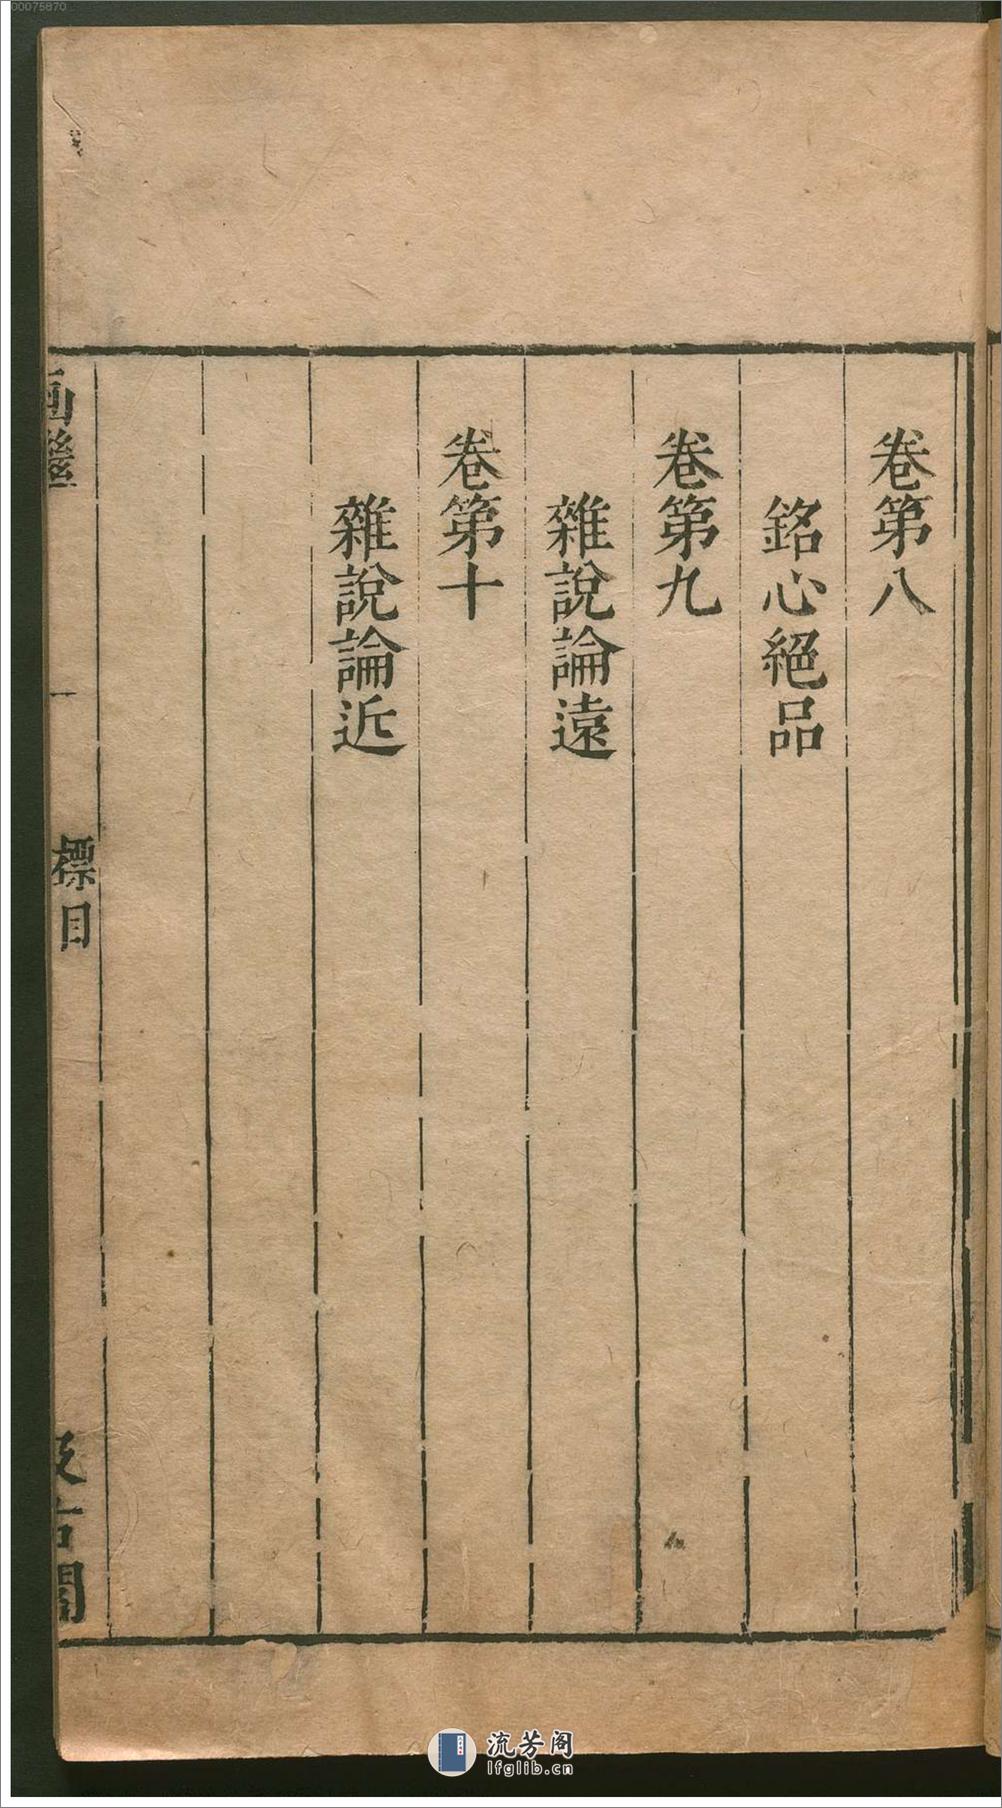 00075870
卷第八
銘心絕品
卷第九
雜說論遠
卷第十
雜說論近
畫繼
一
標目
汲古閣
流芳阁
lfglib.cn